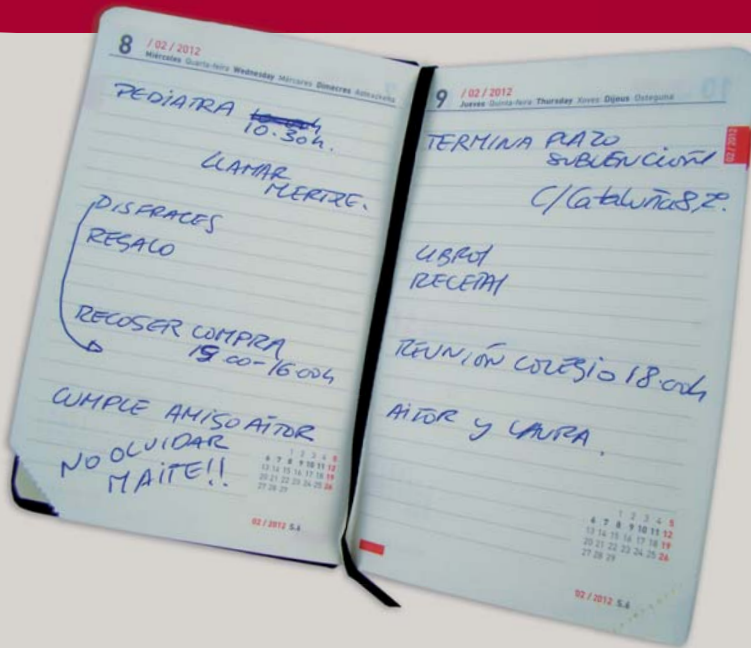 8 / 02 / 2012
Miércoles Quarta-feira Wednesday Mércores Dimecres Asteazkena
PEDIATRA
10.30h.
LLAMAR
MERTXE.
DISFRACES
REGALO
RECOGER COMPRA
15.00-16.00h
CUMPLE AMIGO AITOR
NO OLVIDAR
MAITE!!
1 2 3 4 5
6 7 8 9 10 11 12
13 14 15 16 17 18 19
20 21 22 23 24 25 26
27 28 29
02 / 2012 S.6
9 / 02 / 2012
Jueves Quinta-feira Thursday Xoves Dijous Osteguna
02 / 2012
TERMINA PLAZO
SUBVENCIÓN
C/Cataluña 8, 2º.
LIBROS
RECETAS
REUNIÓN COLEGIO 18.00h
AITOR y LAURA.
1 2 3 4 5
6 7 8 9 10 11 12
13 14 15 16 17 18 19
20 21 22 23 24 25 26
27 28 29
02 / 2012 S.6